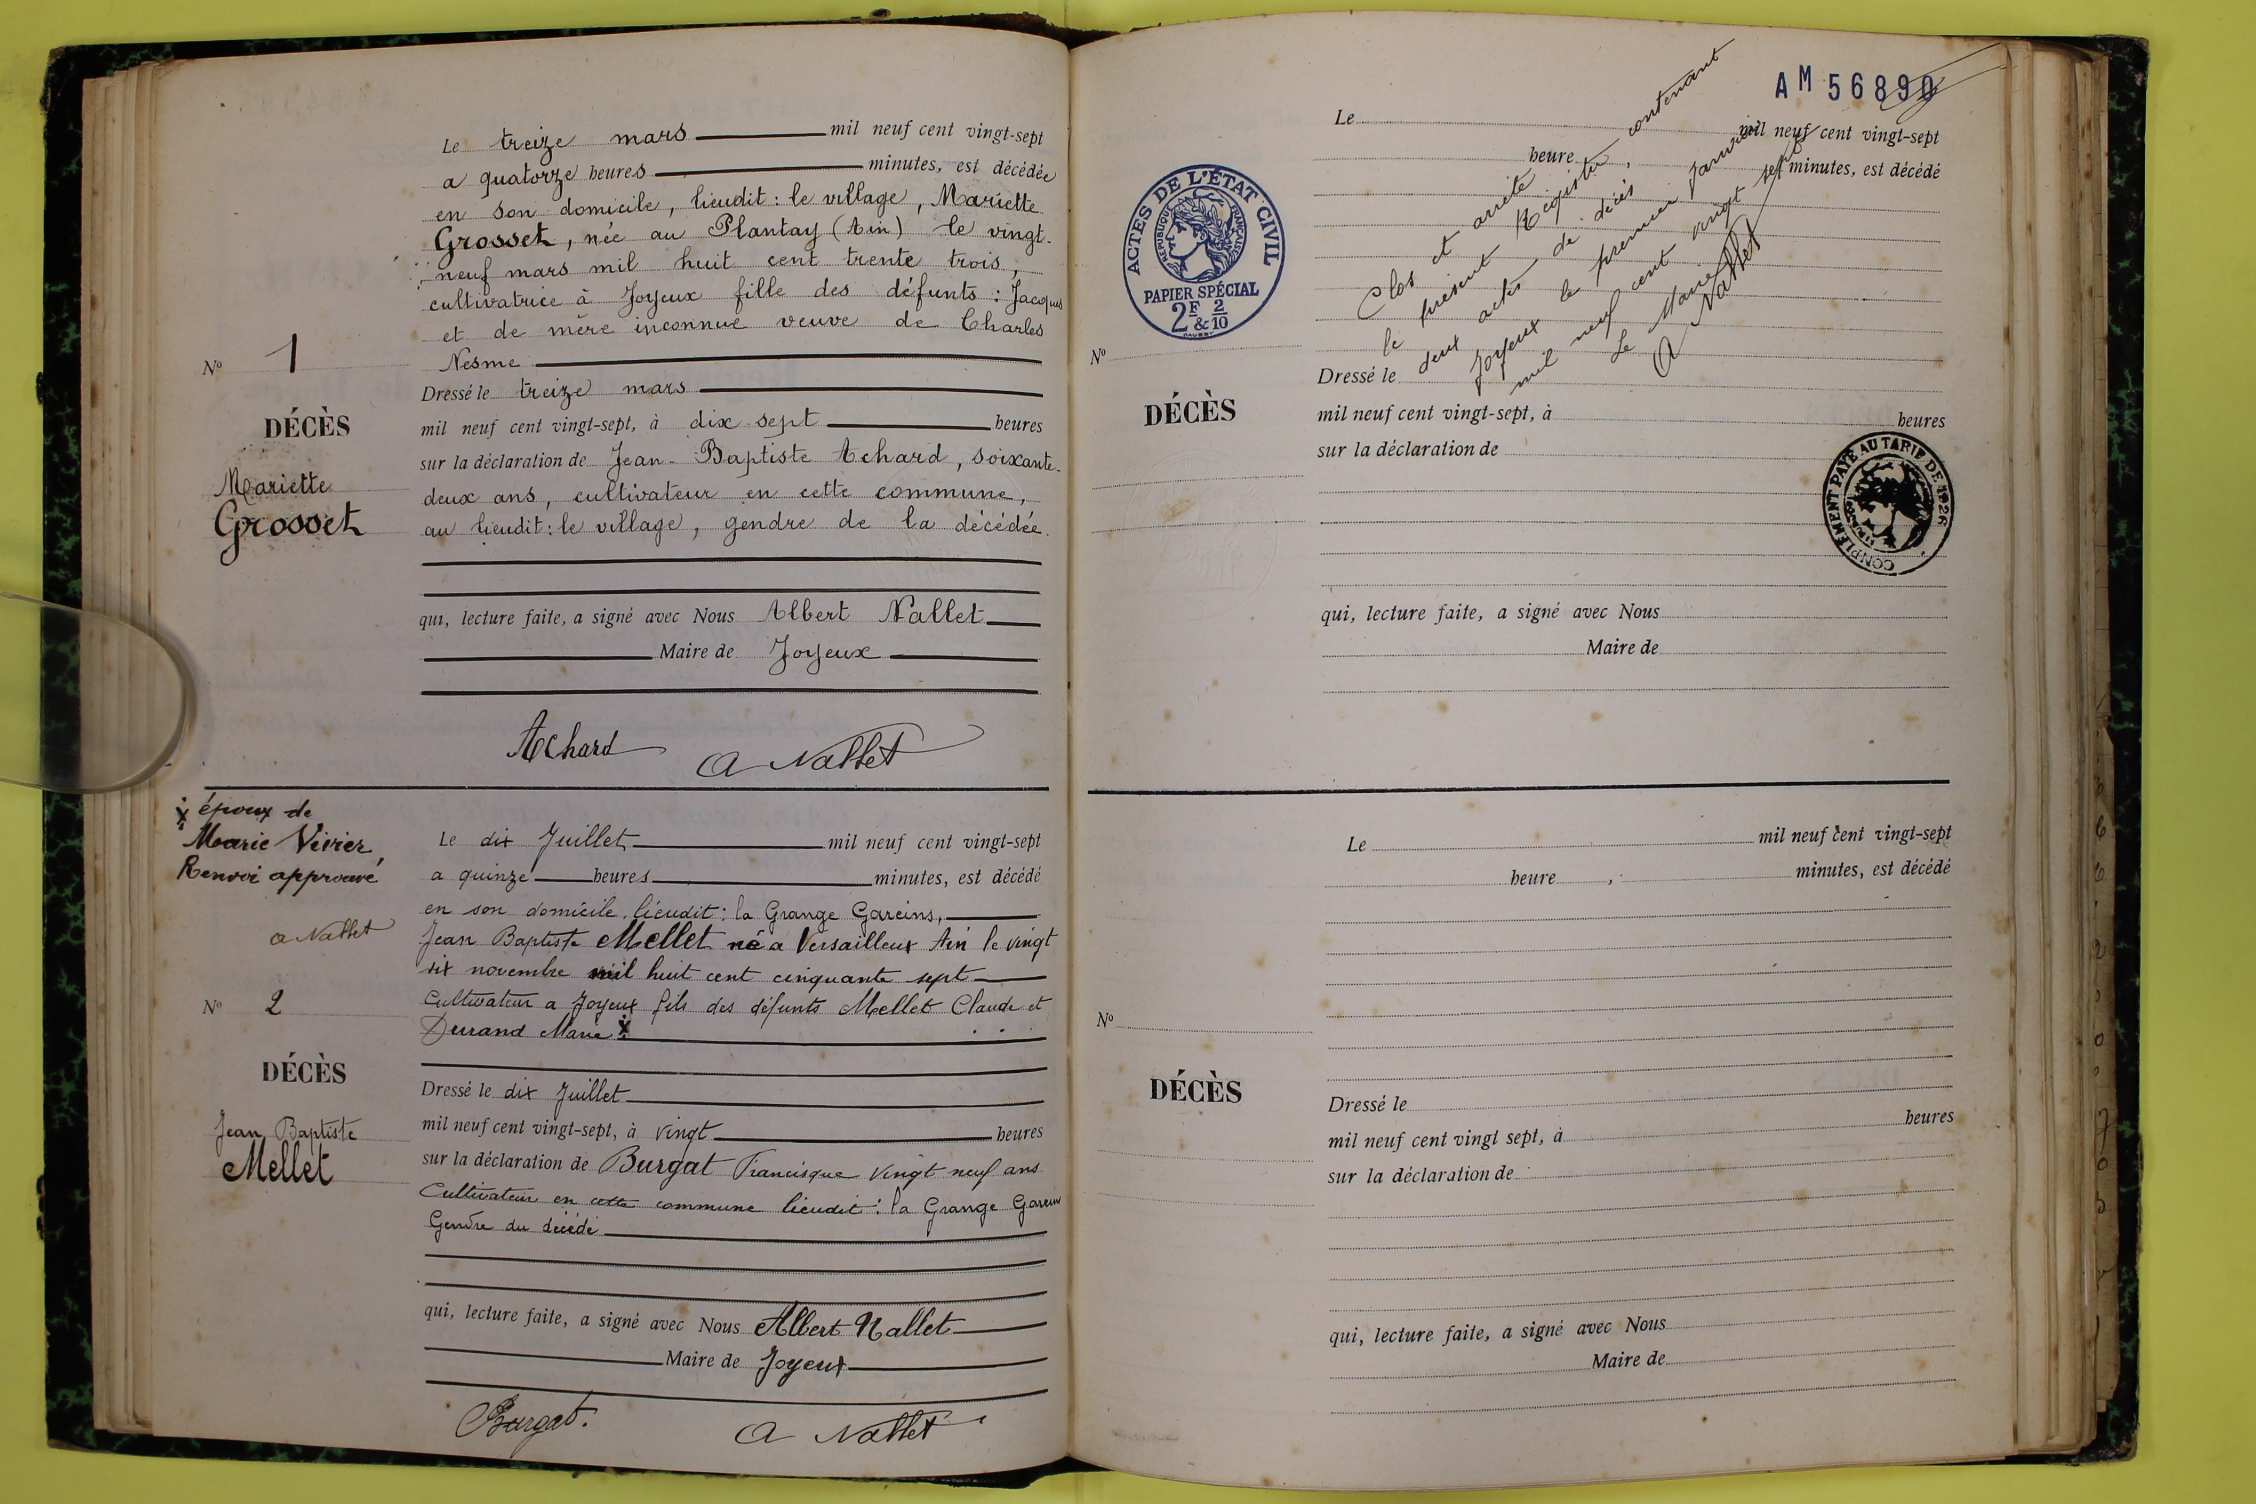 Le treize mars mil neuf cent vingt-sept
a quatorze heures minutes, est décédée
en son domicile, lieudit : le village, Mariette
Grosset, née au Plantay (Ain) le vingt-
neuf mars mil huit cent trente trois,
cultivatrice à Joyeux fille des défunts : Jacques
et de mère inconnue veuve de Charles
Nesme
Nº 1
DÉCÈS
Mariette
Grosset
Dressé le treize mars
mil neuf cent vingt-sept, à dix sept heures
sur la déclaration de Jean-Baptiste Achard, soixante-
deux ans, cultivateur en cette commune,
au lieudit : le village, gendre de la décédée.
qui, lecture faite, a signé avec Nous Albert Nallet
Maire de Joyeux
Achard A Nallet
époux de
Marie Vivier
Renvoi approuvé
A Nallet
Le dix Juillet mil neuf cent vingt-sept
a quinze heures minutes, est décédé
en son domicile, lieudit : la Grange Garcins,
Jean Baptiste Mellet né a Versailleux Ain le vingt
six novembre mil huit cent cinquante sept
Cultivateur a Joyeux fils des défunts Mellet Claude et
Durand Marie
Nº 2
DÉCÈS
Jean Baptiste
Mellet
Dressé le dix Juillet
mil neuf cent vingt-sept, à vingt heures
sur la déclaration de Burgat Francisque vingt neuf ans
Cultivateur en cette commune lieudit : la Grange Garcins
Gendre du décédé
qui, lecture faite, a signé avec Nous Albert Nallet
Maire de Joyeux
Burgat. A Nallet
AM 56890
ACTES DE L'ÉTAT CIVIL
RÉPUBLIQUE FRANÇAISE
PAPIER SPÉCIAL
2F & 2/10
Le mil neuf cent vingt-sept
heure , minutes, est décédé
Clos et arrêté
le présent Registre contenant
deux actes de décès
Joyeux le premier Janvier
mil neuf cent vingt sept
Le Maire
A Nallet
Nº
DÉCÈS
Dressé le
mil neuf cent vingt-sept, à heures
sur la déclaration de
COMPLÉMENT PAYÉ AU TARIF DE 1926
qui, lecture faite, a signé avec Nous
Maire de
Le mil neuf cent vingt-sept
heure , minutes, est décédé
Nº
DÉCÈS
Dressé le
mil neuf cent vingt sept, à heures
sur la déclaration de
qui, lecture faite, a signé avec Nous
Maire de